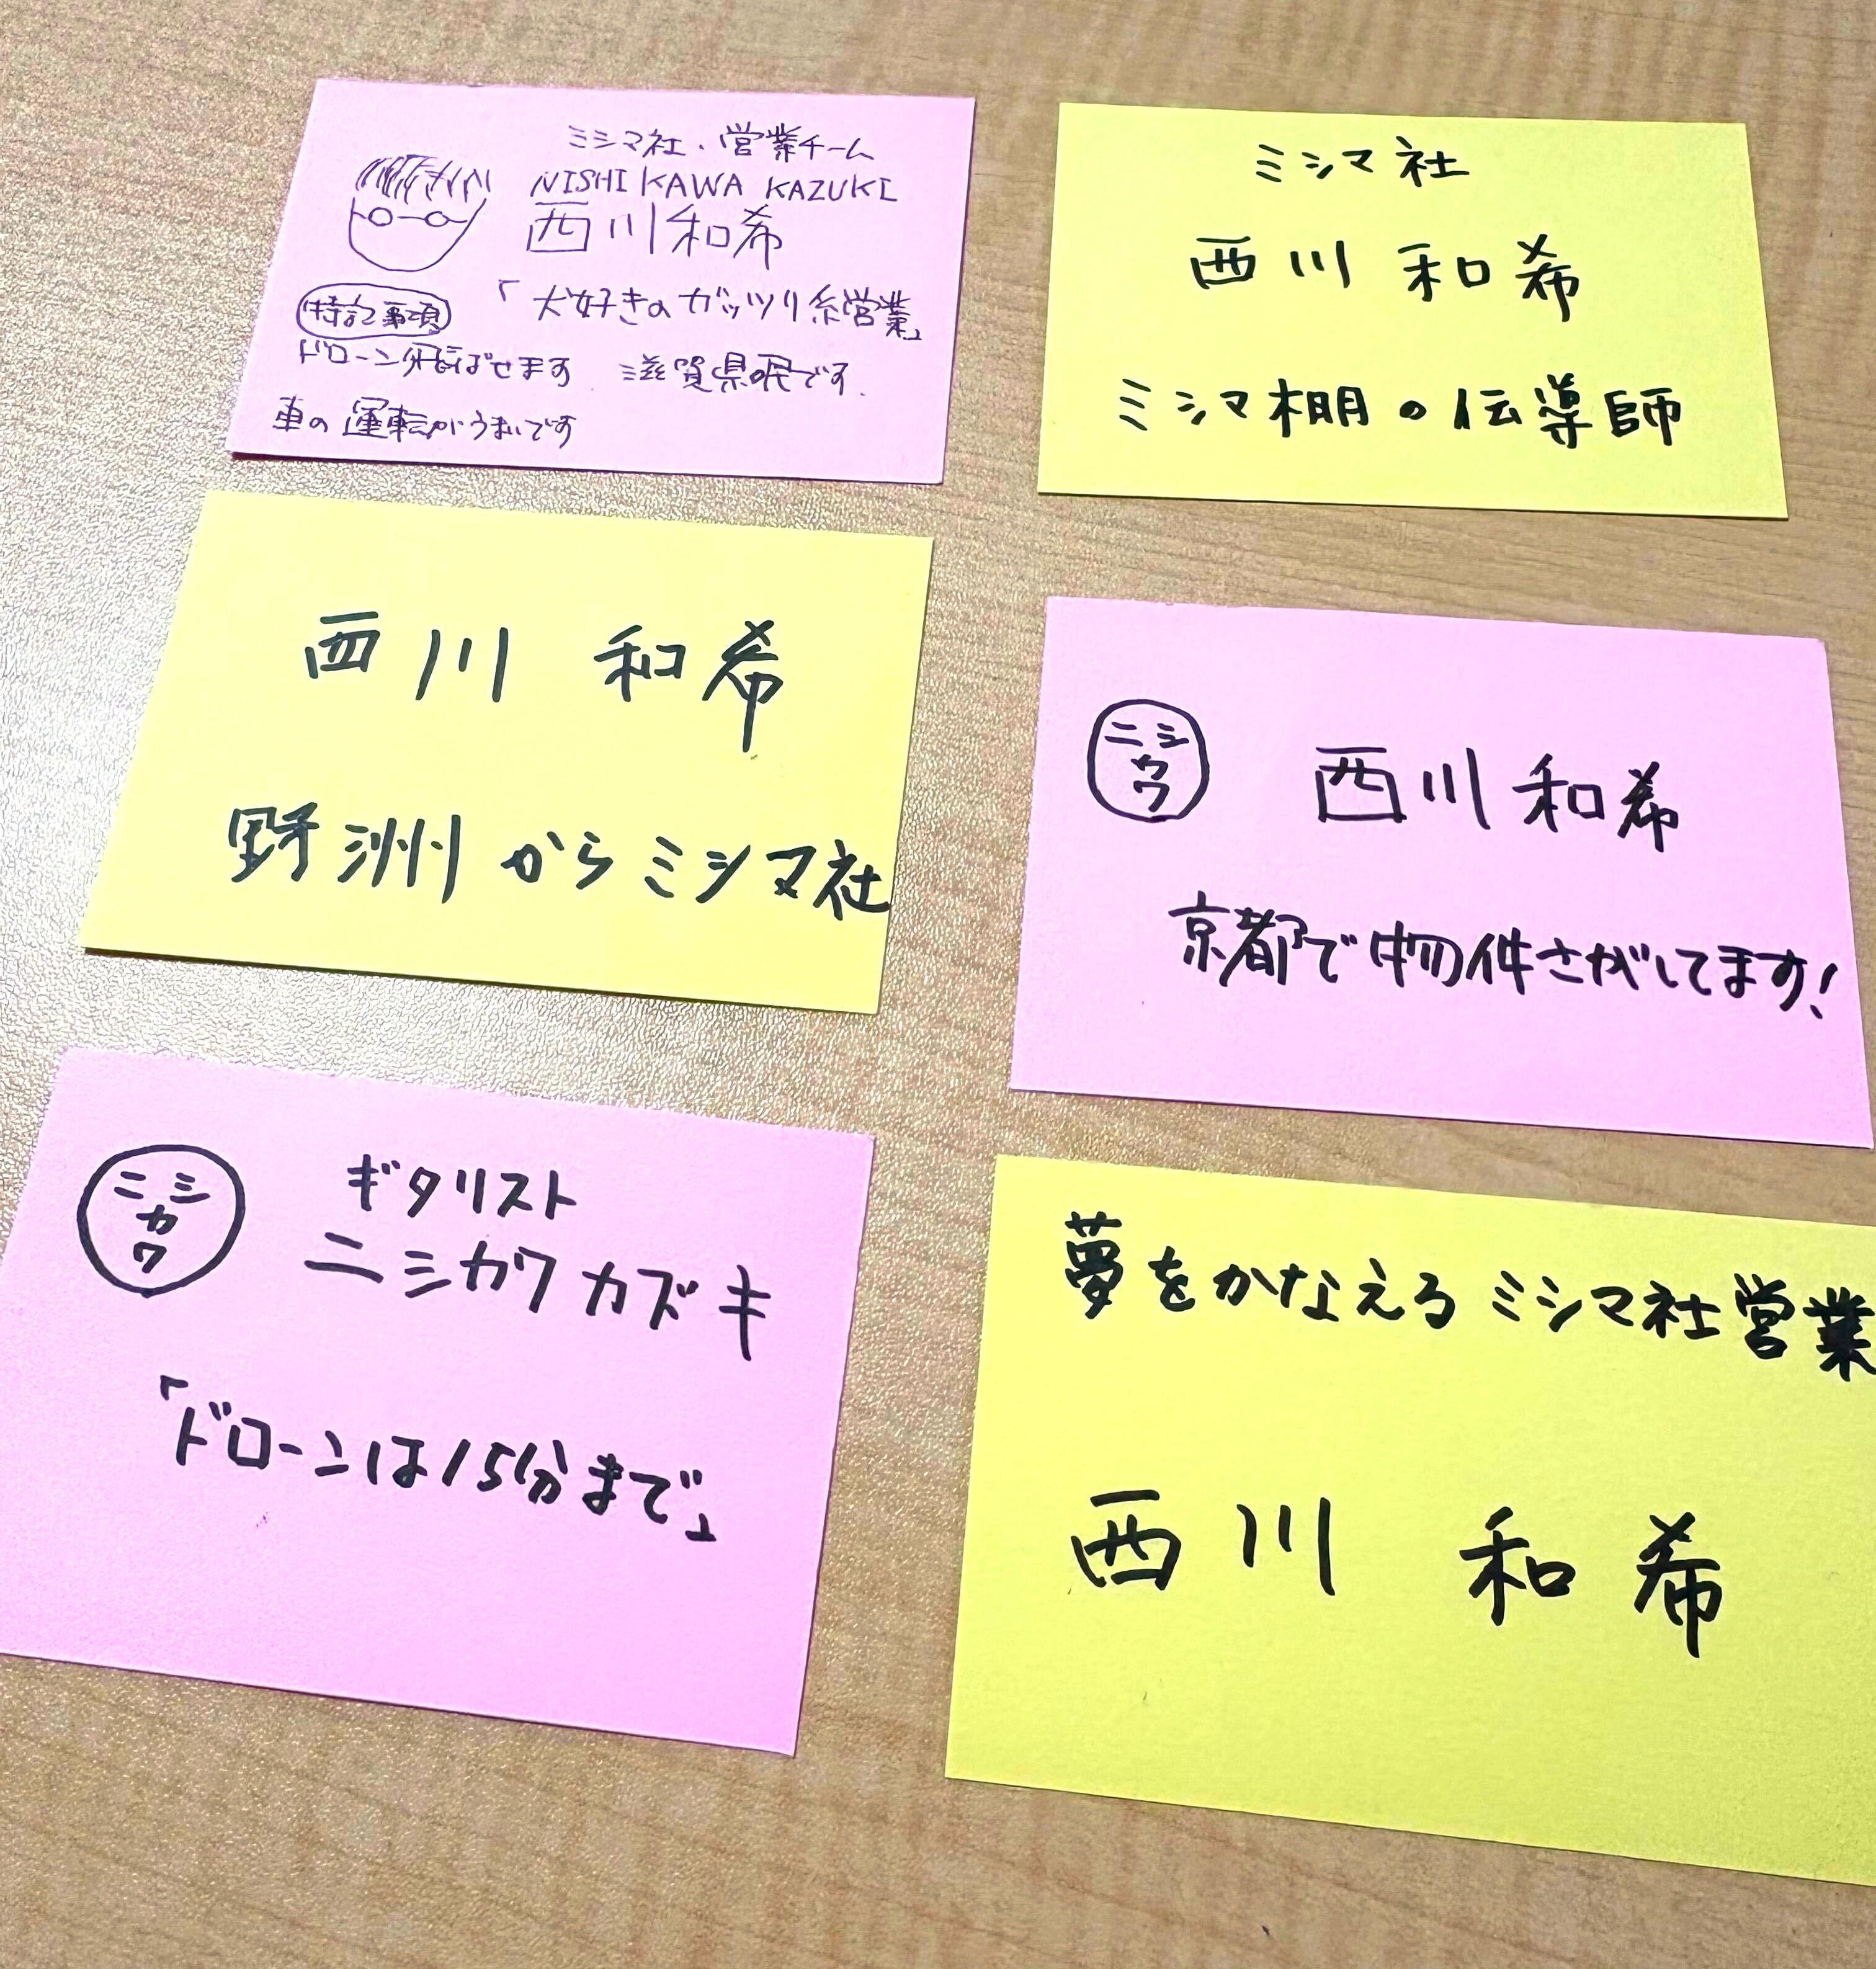 ミシマ社・営業チーム
NISHIKAWA KAZUKI
西川和希
「犬好きのガッツリ系営業」
特記事項
ドローン飛ばせます 滋賀県民です.
車の運転がうまいです
ミシマ社
西川 和希
ミシマ棚の伝導師
西川 和希
野洲からミシマ社
ニシカワ
西川和希
京都で物件さがしてます!
ニシカワ
ギタリスト
ニシカワ カズキ
「ドローンは15分まで」
夢をかなえるミシマ社営業
西川 和希